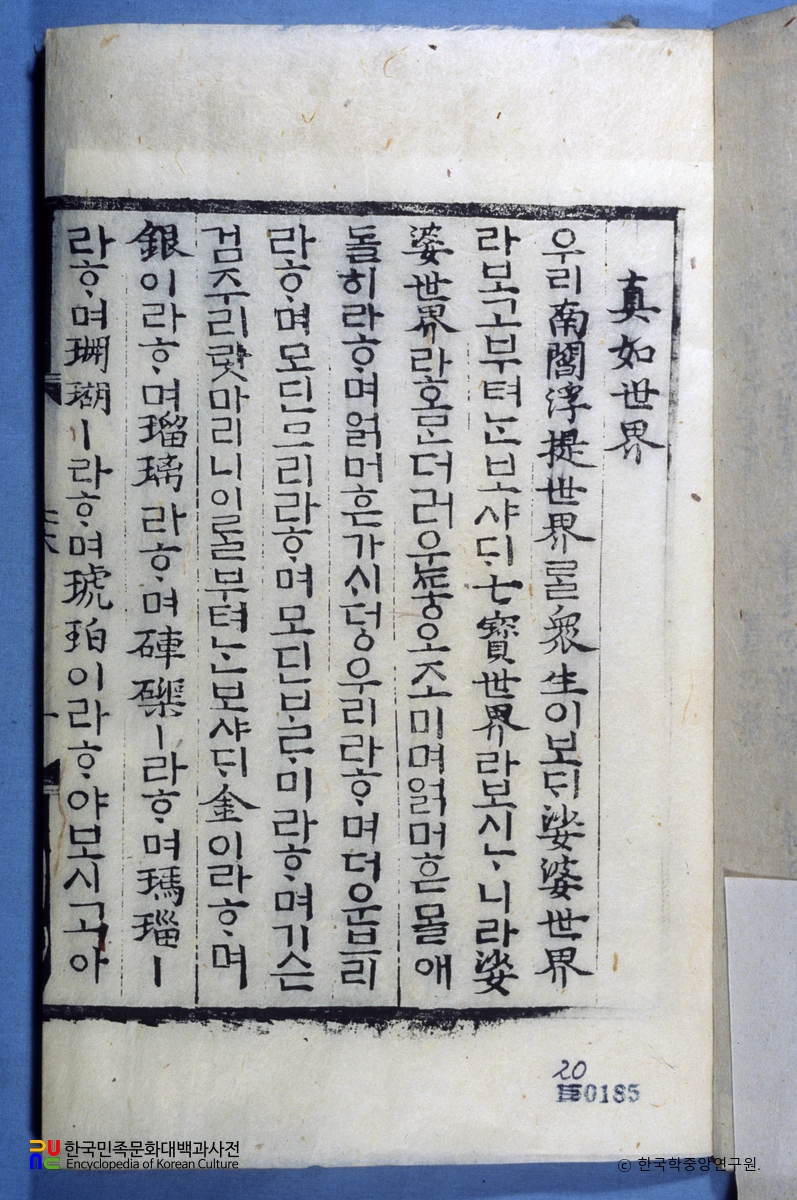 真如世界
우리南閻浮提世界ᄅᆞᆯ衆生이보ᄃᆡ娑婆世界
라보고부텨ᄂᆞᆫ보샤ᄃᆡ七寶世界라보시ᄂᆞ니라娑
婆世界라호ᄆᆞᆫ더러우ᄯᅩᇰ오조미며얽머흔몰애
돌히라ᄒᆞ며얽머흔가ᄉᆡ덩우리라ᄒᆞ며더운브리
라ᄒᆞ며모딘므리라ᄒᆞ며모딘ᄇᆞᄅᆞ미라ᄒᆞ며기슨
검주리랏마리니이ᄅᆞᆯ부텨ᄂᆞᆫ보샤ᄃᆡ金이라ᄒᆞ며
銀이라ᄒᆞ며瑠璃라ᄒᆞ며硨磲ㅣ라ᄒᆞ며瑪瑙ㅣ
라ᄒᆞ며珊瑚ㅣ라ᄒᆞ며琥珀이라ᄒᆞ야보시고아
20
0185
한국민족문화대백과사전
Encyclopedia of Korean Culture
© 한국학중앙연구원.